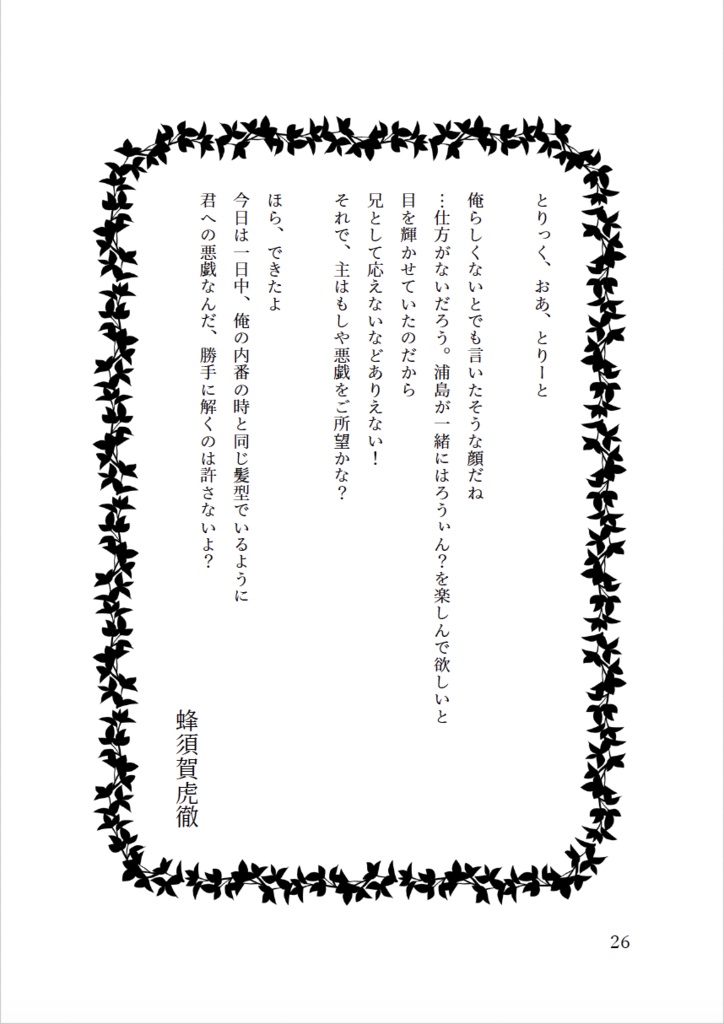 とりっく、おあ、とりーと
俺らしくないとでも言いたそうな顔だね
…仕方がないだろう。浦島が一緒にはろうぃん？を楽しんで欲しいと
目を輝かせていたのだから
兄として応えないなどありえない！
それで、主はもしや悪戯をご所望かな？
ほら、できたよ
今日は一日中、俺の内番の時と同じ髪型でいるように
君への悪戯なんだ、勝手に解くのは許さないよ？
蜂須賀虎徹
26